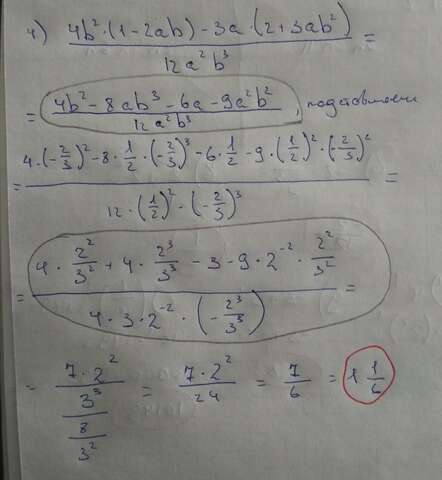 4) 4b²·(1-2ab)-3a·(2+3ab²) / 12a²b³ =
= 4b²-8ab³-6a-9a²b² / 12a²b³, подставляем
= 4·(-2/3)²-8·1/2·(-2/3)³-6·1/2-9·(1/2)²·(-2/3)² / 12·(1/2)²-(-2/3)³ =
= 4·2²/3²+4·2³/3³-3-9·2⁻²·2²/3² / 4·3·2⁻²·(-2³/3³) =
= 7·2²/3³ / 8/3² = 7·2²/24 = 7/6 = 1 1/6